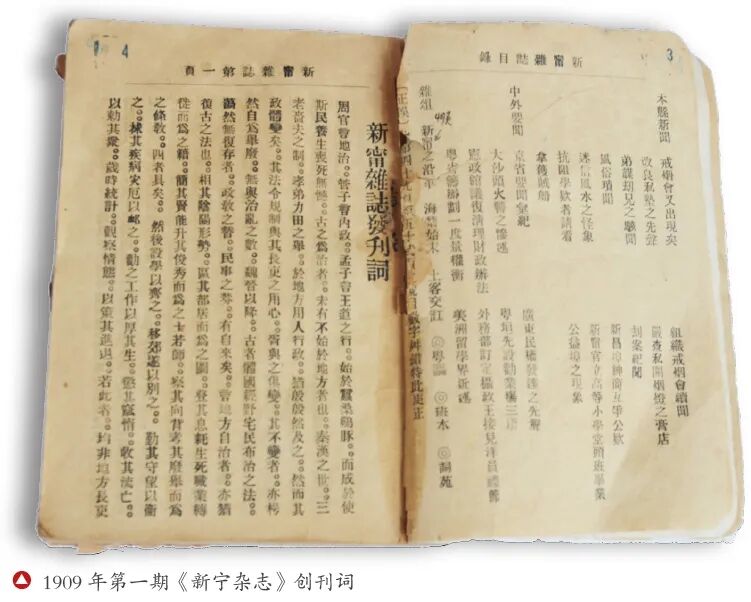 3
新甯雜誌目錄
本縣新聞
戒烟會又出現矣
組織戒烟會續聞
改良私塾之先聲
嚴查私開烟燈之膏店
弟謀刼兄之駭聞
刼案紀聞
風俗瑣聞
新昌埠紳商互爭公欵
迷信風水之怪象
新甯官立高等小學堂頭班畢業
抗阻學欵者請看
公益埠之現象
拿獲賊船
中外要聞
京省要聞彙紀
廣東民權發達之先解
大沙頭火警之慘述
粵垣先設勸業塲三區
憲政館議復清理財政辦法
外務部訂定攝政王接見洋員禮節
粵省籌辦劃一度量權衡
美洲留學界新述
雜俎
新甯之沿革
海晏始末
土客交訌
◎粵謳
◎班本
◎詞苑
4
新甯雜誌第一頁
新甯雜誌發刊詞
周官曾地治。管子曾內政。孟子曾王道之行。始於蠶桑鷄豚。而成於使
斯民養生喪死無憾。古之爲治者。未有不始於地方者也。秦漢之世。三
老嗇夫之制。孝弟力田之舉。於地方用人行政。猶般般然及之。然而其
政體變矣。其法令規制與其長吏之用心。胥與之俱變。其不變者。亦將
然自爲舉廢。無與治亂之數。魏晉以降。古者體國經野宅民布治之法。
蕩然無復存者。政敎之瞀。民事之棼。有自來矣。曾地方自治者。亦猶
復古之法也。相其陰陽形勢。區其都居而爲之圖。登其息耗生死職業轉
徙而爲之籍。簡其賢能升其俊秀而爲之士若師。察其向背考其廢舉而爲
之條敎。四者具矣。然後設學以齊之。移郊遂以別之。勤其守望以衞
之。捄其疾病灾厄以卹之。勸之工作以厚其生。懲其窳惰。收其流亡。
以勅其衆。歲時統計。觀察情態。以策其進退。若此者。均非地方長吏
1909 年第一期《新宁杂志》创刊词